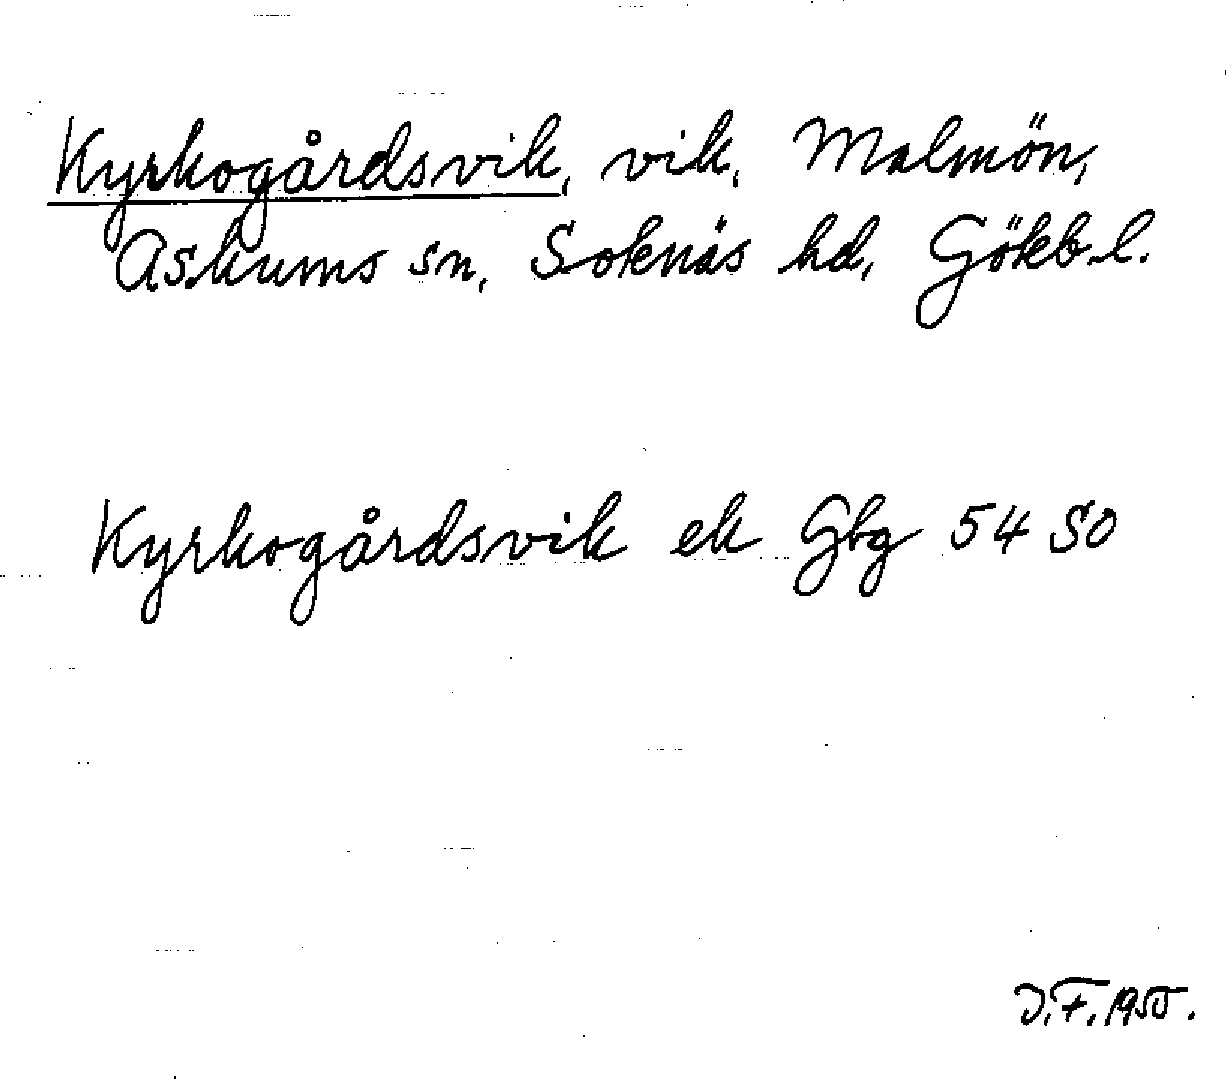 Kyrkogårdsvik, vik, Malmön,
Askums sn, Sotenäs hd, Götеb.l.
Kyrkogårdsvik ek Gbg 54 SO
J.F. 1955.